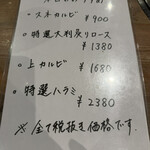 ・スネカルビ
¥900
・特選大判炭リロース
¥1380
・上カルビ ¥1680
・特選ハラミ
¥2380
※全て税抜き価格です。